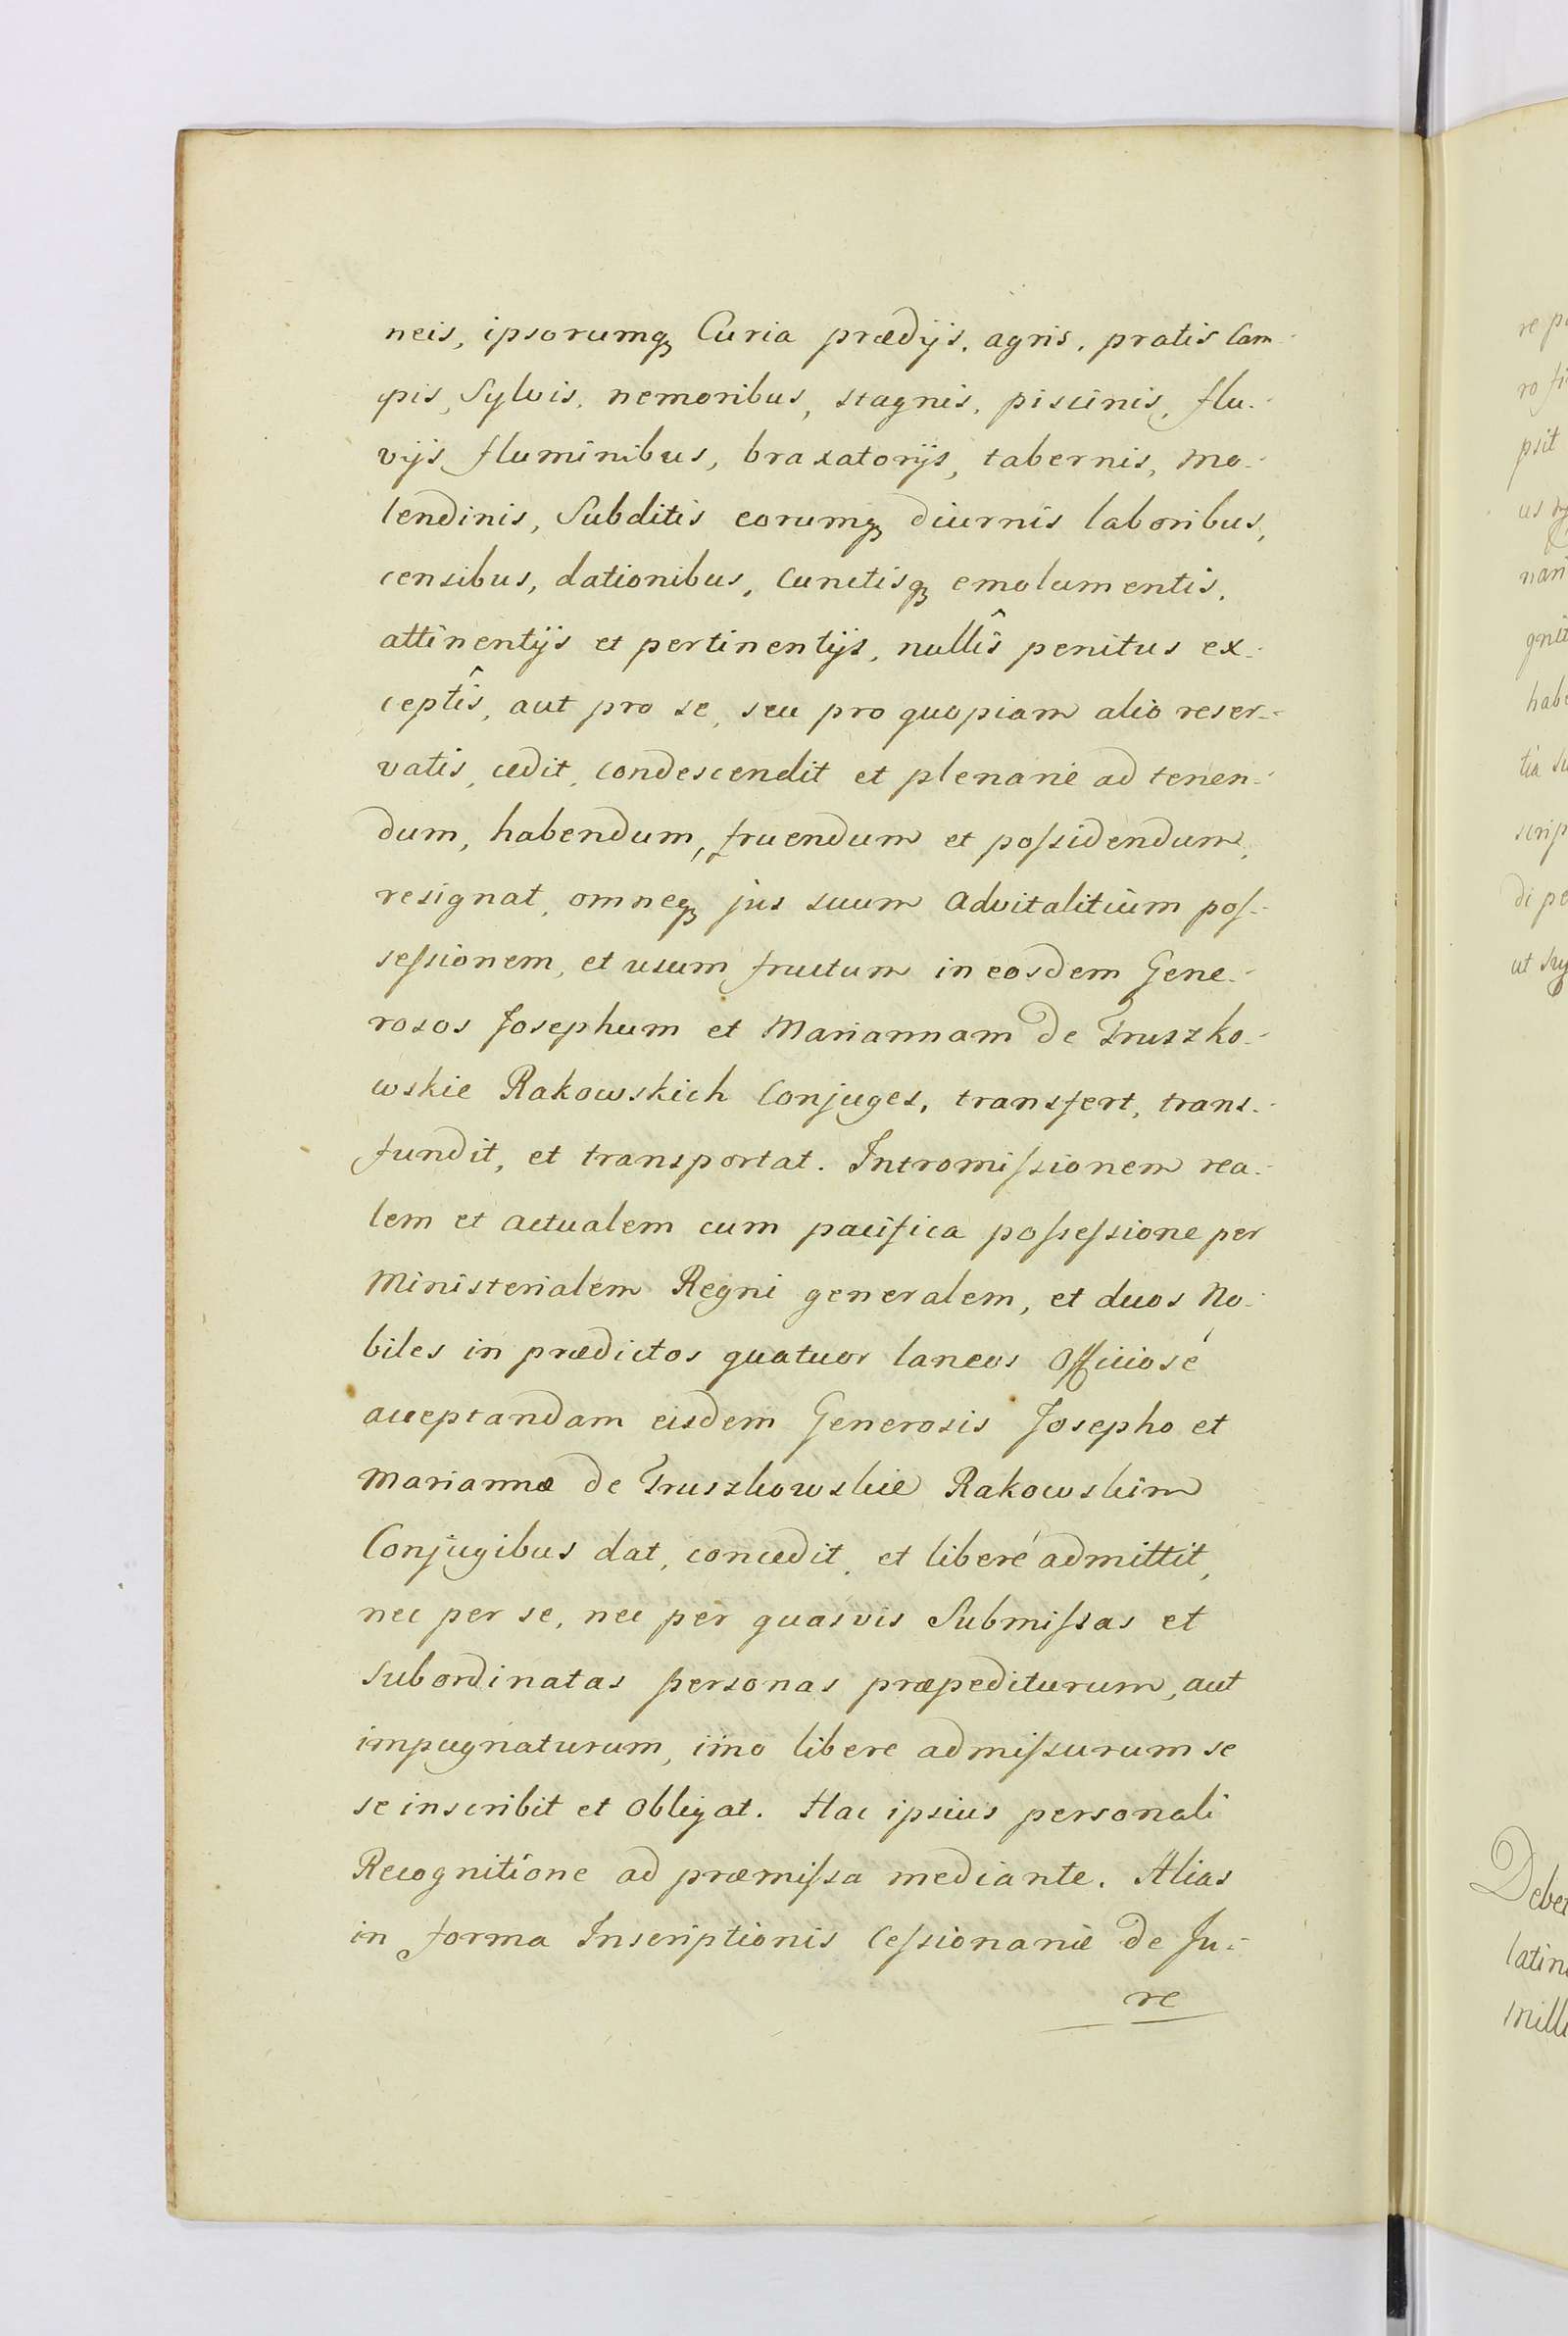 neis, ipsorumq₃ Curia prædijs, agris, pratis Cam-
pis, Sylvis, nemoribus, stagnis, piscinis, flu-
vijs fluminibus, braxatorijs, tabernis, mo-
lendinis, Subditis eorumq₃ diurnis laboribus,
censibus, dationibus, Cunctisq₃ emolumentis,
attinentijs et pertinentijs, nullîs penitus ex-
ceptîs, aut pro se, seu pro quopiam alio reser-
vatis, cedit, condescendit et plenarie ad tenen-
dum, habendum, fruendum et poſsidendum,
resignat, omneq₃ jus suum advitalitium poſ-
seſsionem, et usum fructum in eosdem Gene-
rosos Josephum et Mariannam de Truszko-
wskie Rakowskich Conjuges, transfert, trans-
fundit, et transportat. Intromiſsionem rea-
lem et actualem cum pacifica poſseſsione per
Ministerialem Regni generalem, et duos No-
biles in prædictos quatuor laneos officiosé
acceptandam eisdem Generosis Josepho et
Mariannæ de Truszkowskie Rakowskim
Conjugibus dat, concedit, et liberé admittit,
nec per se, nec per quasvis Submiſsas et
subordinatas personas præpediturum, aut
impugnaturum, imo libere admiſsurum se
se inscribit et obligat. Hac ipsius personali
Recognitione ad præmiſsa mediante. Alias
in forma Inscriptionis Ceſsionariæ de Ju-
re
re
psit
habe
di pe
Debet
latin
mille